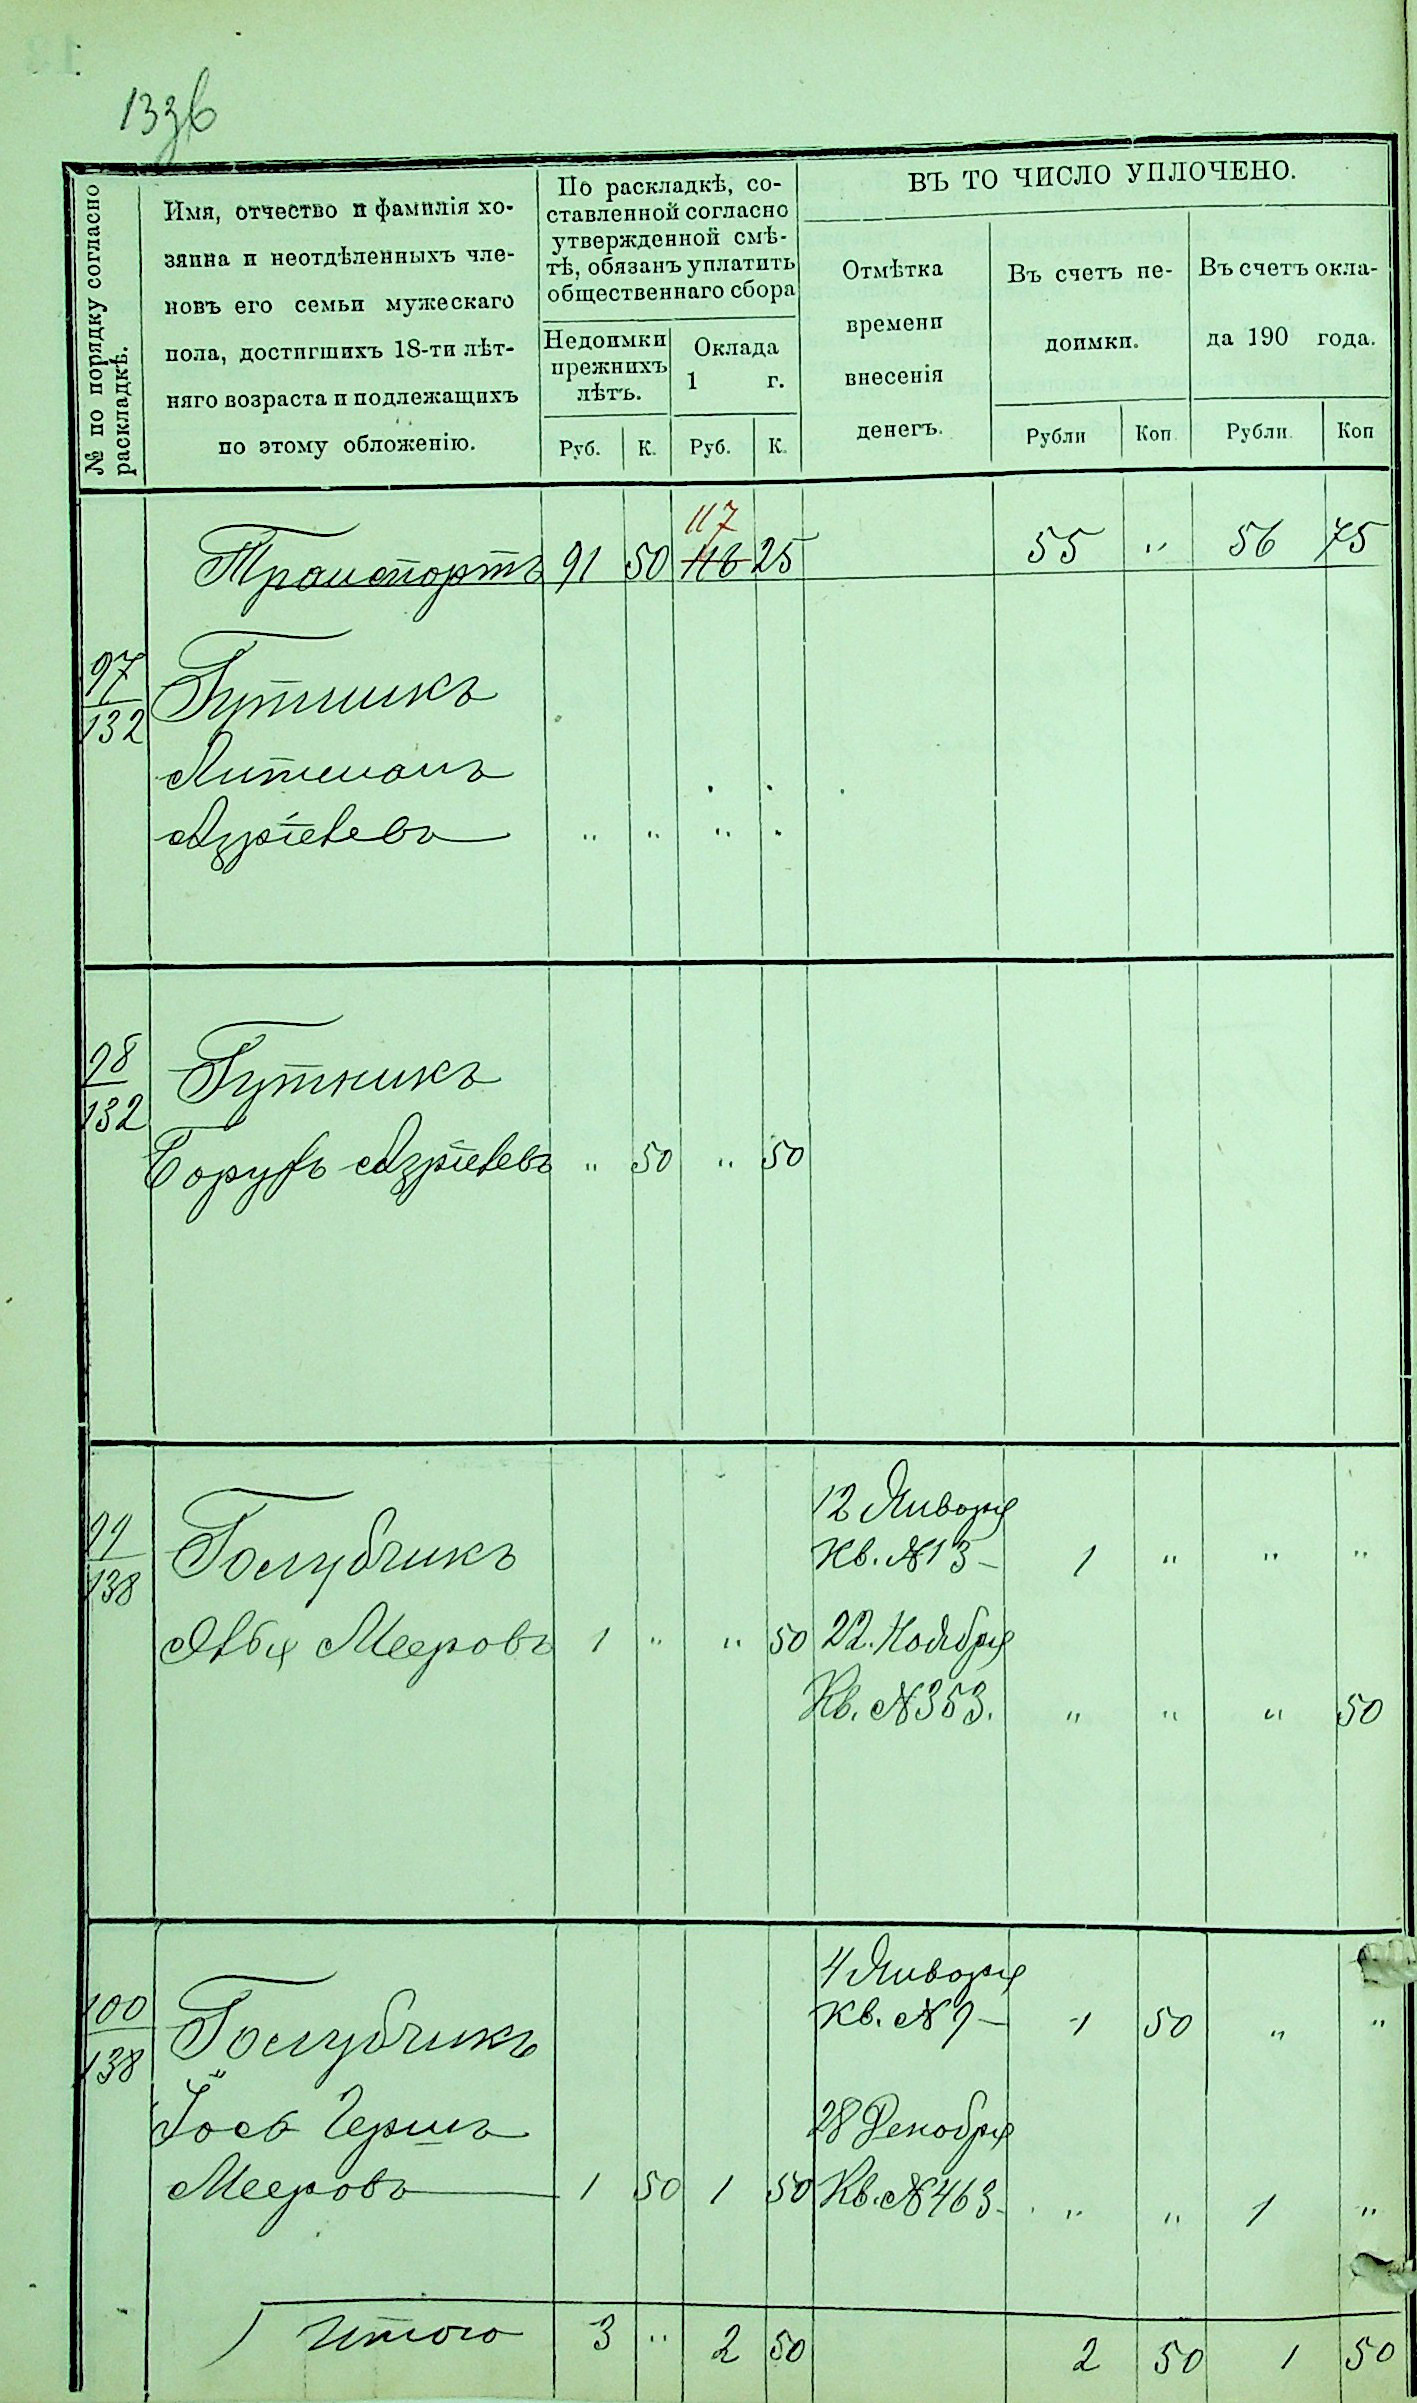 133б
ВЪ ТО ЧИСЛО УПЛОЧЕНО.
№ по порядку согласно раскладкѣ.
Имя, отчество и фамилія хо-
зяина и неотдѣленныхъ чле-
новъ его семьи мужескаго
пола, достигшихъ 18-ти лѣт-
няго возраста и подлежащихъ
по этому обложенію.
По раскладкѣ, со-
ставленной согласно
утвержденной смѣ-
тѣ, обязанъ уплатить
общественнаго сбора
Недоимки прежнихъ лѣтъ.
Оклада 1 г.
Отмѣтка времени внесенія денегъ.
Въ счетъ не- доимки.
Въ счетъ окла- да 190 года.
Руб. К. Руб. К. Рубли Коп. Рубли Коп
117
Транспортъ 91 50 116 25 55 " 56 75
97
132
Гутникъ
Литманъ
Азріелевъ " " " "
98
132
Гутникъ
Борухъ Азріелевъ " 50 " 50
99
138
12 Января
Голубчикъ Кв. №13 - 1 " " "
Лейб Мееровъ 1 " " 50 22. Ноября
Кв. №353. " " " 50
100
138
4 Января
Голубчикъ Кв. №9 - 1 50 " "
Іосъ Гершъ 28 Декабря
Мееровъ 1 50 1 50 Кв. №463 " " 1 "
Итого 3 " 2 50 2 50 1 50